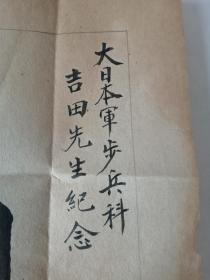 大日本軍步兵科
吉田先生紀念